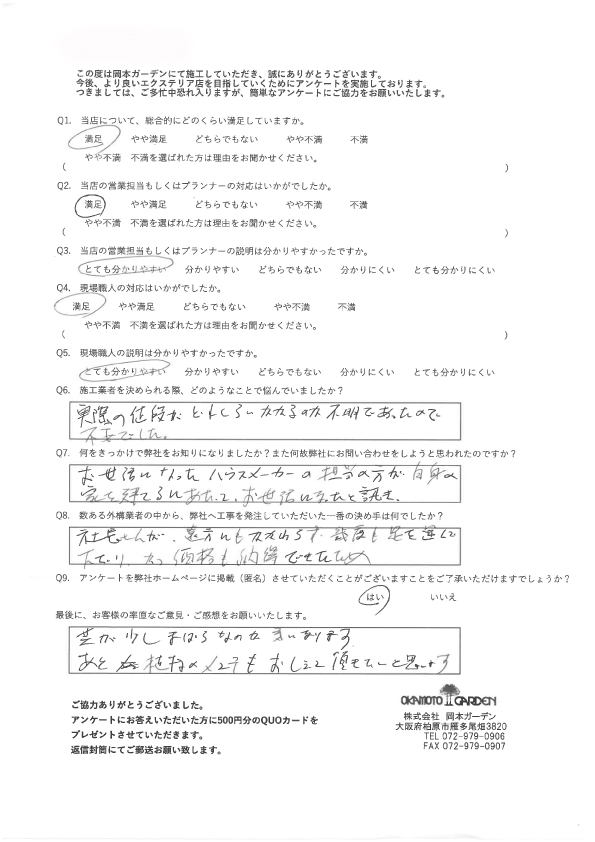 この度は岡本ガーデンにて施工していただき、誠にありがとうございます。
今後、より良いエクステリア店を目指していくためにアンケートを実施しております。
つきましては、ご多忙中恐れ入りますが、簡単なアンケートにご協力をお願いいたします。
Q1. 当店について、総合的にどのくらい満足していますか。
満足 やや満足 どちらでもない やや不満 不満
やや不満 不満を選ばれた方は理由をお聞かせください。
( )
Q2. 当店の営業担当もしくはプランナーの対応はいかがでしたか。
満足 やや満足 どちらでもない やや不満 不満
やや不満 不満を選ばれた方は理由をお聞かせください。
( )
Q3. 当店の営業担当もしくはプランナーの説明は分かりやすかったですか。
とても分かりやすい 分かりやすい どちらでもない 分かりにくい とても分かりにくい
Q4. 現場職人の対応はいかがでしたか。
満足 やや満足 どちらでもない やや不満 不満
やや不満 不満を選ばれた方は理由をお聞かせください。
( )
Q5. 現場職人の説明は分かりやすかったですか。
とても分かりやすい 分かりやすい どちらでもない 分かりにくい とても分かりにくい
Q6. 施工業者を決められる際、どのようなことで悩んでいましたか？
実際の値段がどれくらいかかるのか不明であったので
不安でした。
Q7. 何をきっかけで弊社をお知りになりましたか？また何故弊社にお問い合わせをしようと思われたのですか？
お世話になったハウスメーカーの担当の方が自身の
家を建てるにあたって、お世話になったと聞き
Q8. 数ある外構業者の中から、弊社へ工事を発注していただいた一番の決め手は何でしたか？
社長さんが、遠方にもかかわらず、幾度も足を運んで
下さり、かつ価格も納得できたため
Q9. アンケートを弊社ホームページに掲載（匿名）させていただくことがございますことをご了承いただけますでしょうか？
はい いいえ
最後に、お客様の率直なご意見・ご感想をお願いいたします。
芝が少しまばらなのが
あと 植物の も おしえて頂きたいと思います
ご協力ありがとうございました。
アンケートにお答えいただいた方に500円分のQUOカードを
プレゼントさせていただきます。
返信封筒にてご郵送お願い致します。
OKAMOTO GARDEN
株式会社 岡本ガーデン
大阪府柏原市雁多尾畑3820
TEL 072-979-0906
FAX 072-979-0907